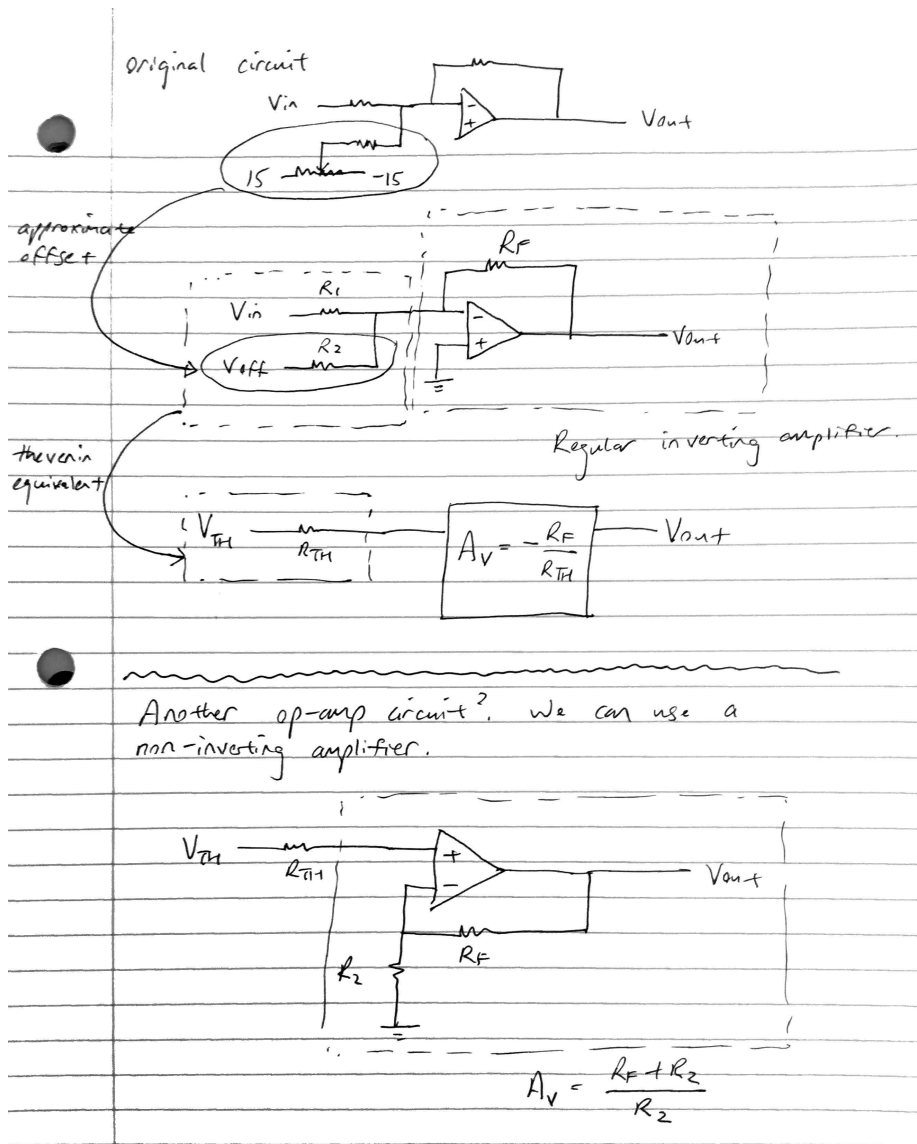 original circuit
Vin
Vout
15 -15
approximate
offset
RF
R1
Vin
R2
Voff
Vout
Regular inverting amplifier.
thevenin
equivalent
VTH
RTH
AV = - RF / RTH
Vout
Another op-amp circuit? We can use a
non-inverting amplifier.
VTH
RTH
Vout
RF
R2
AV = RF + R2 / R2